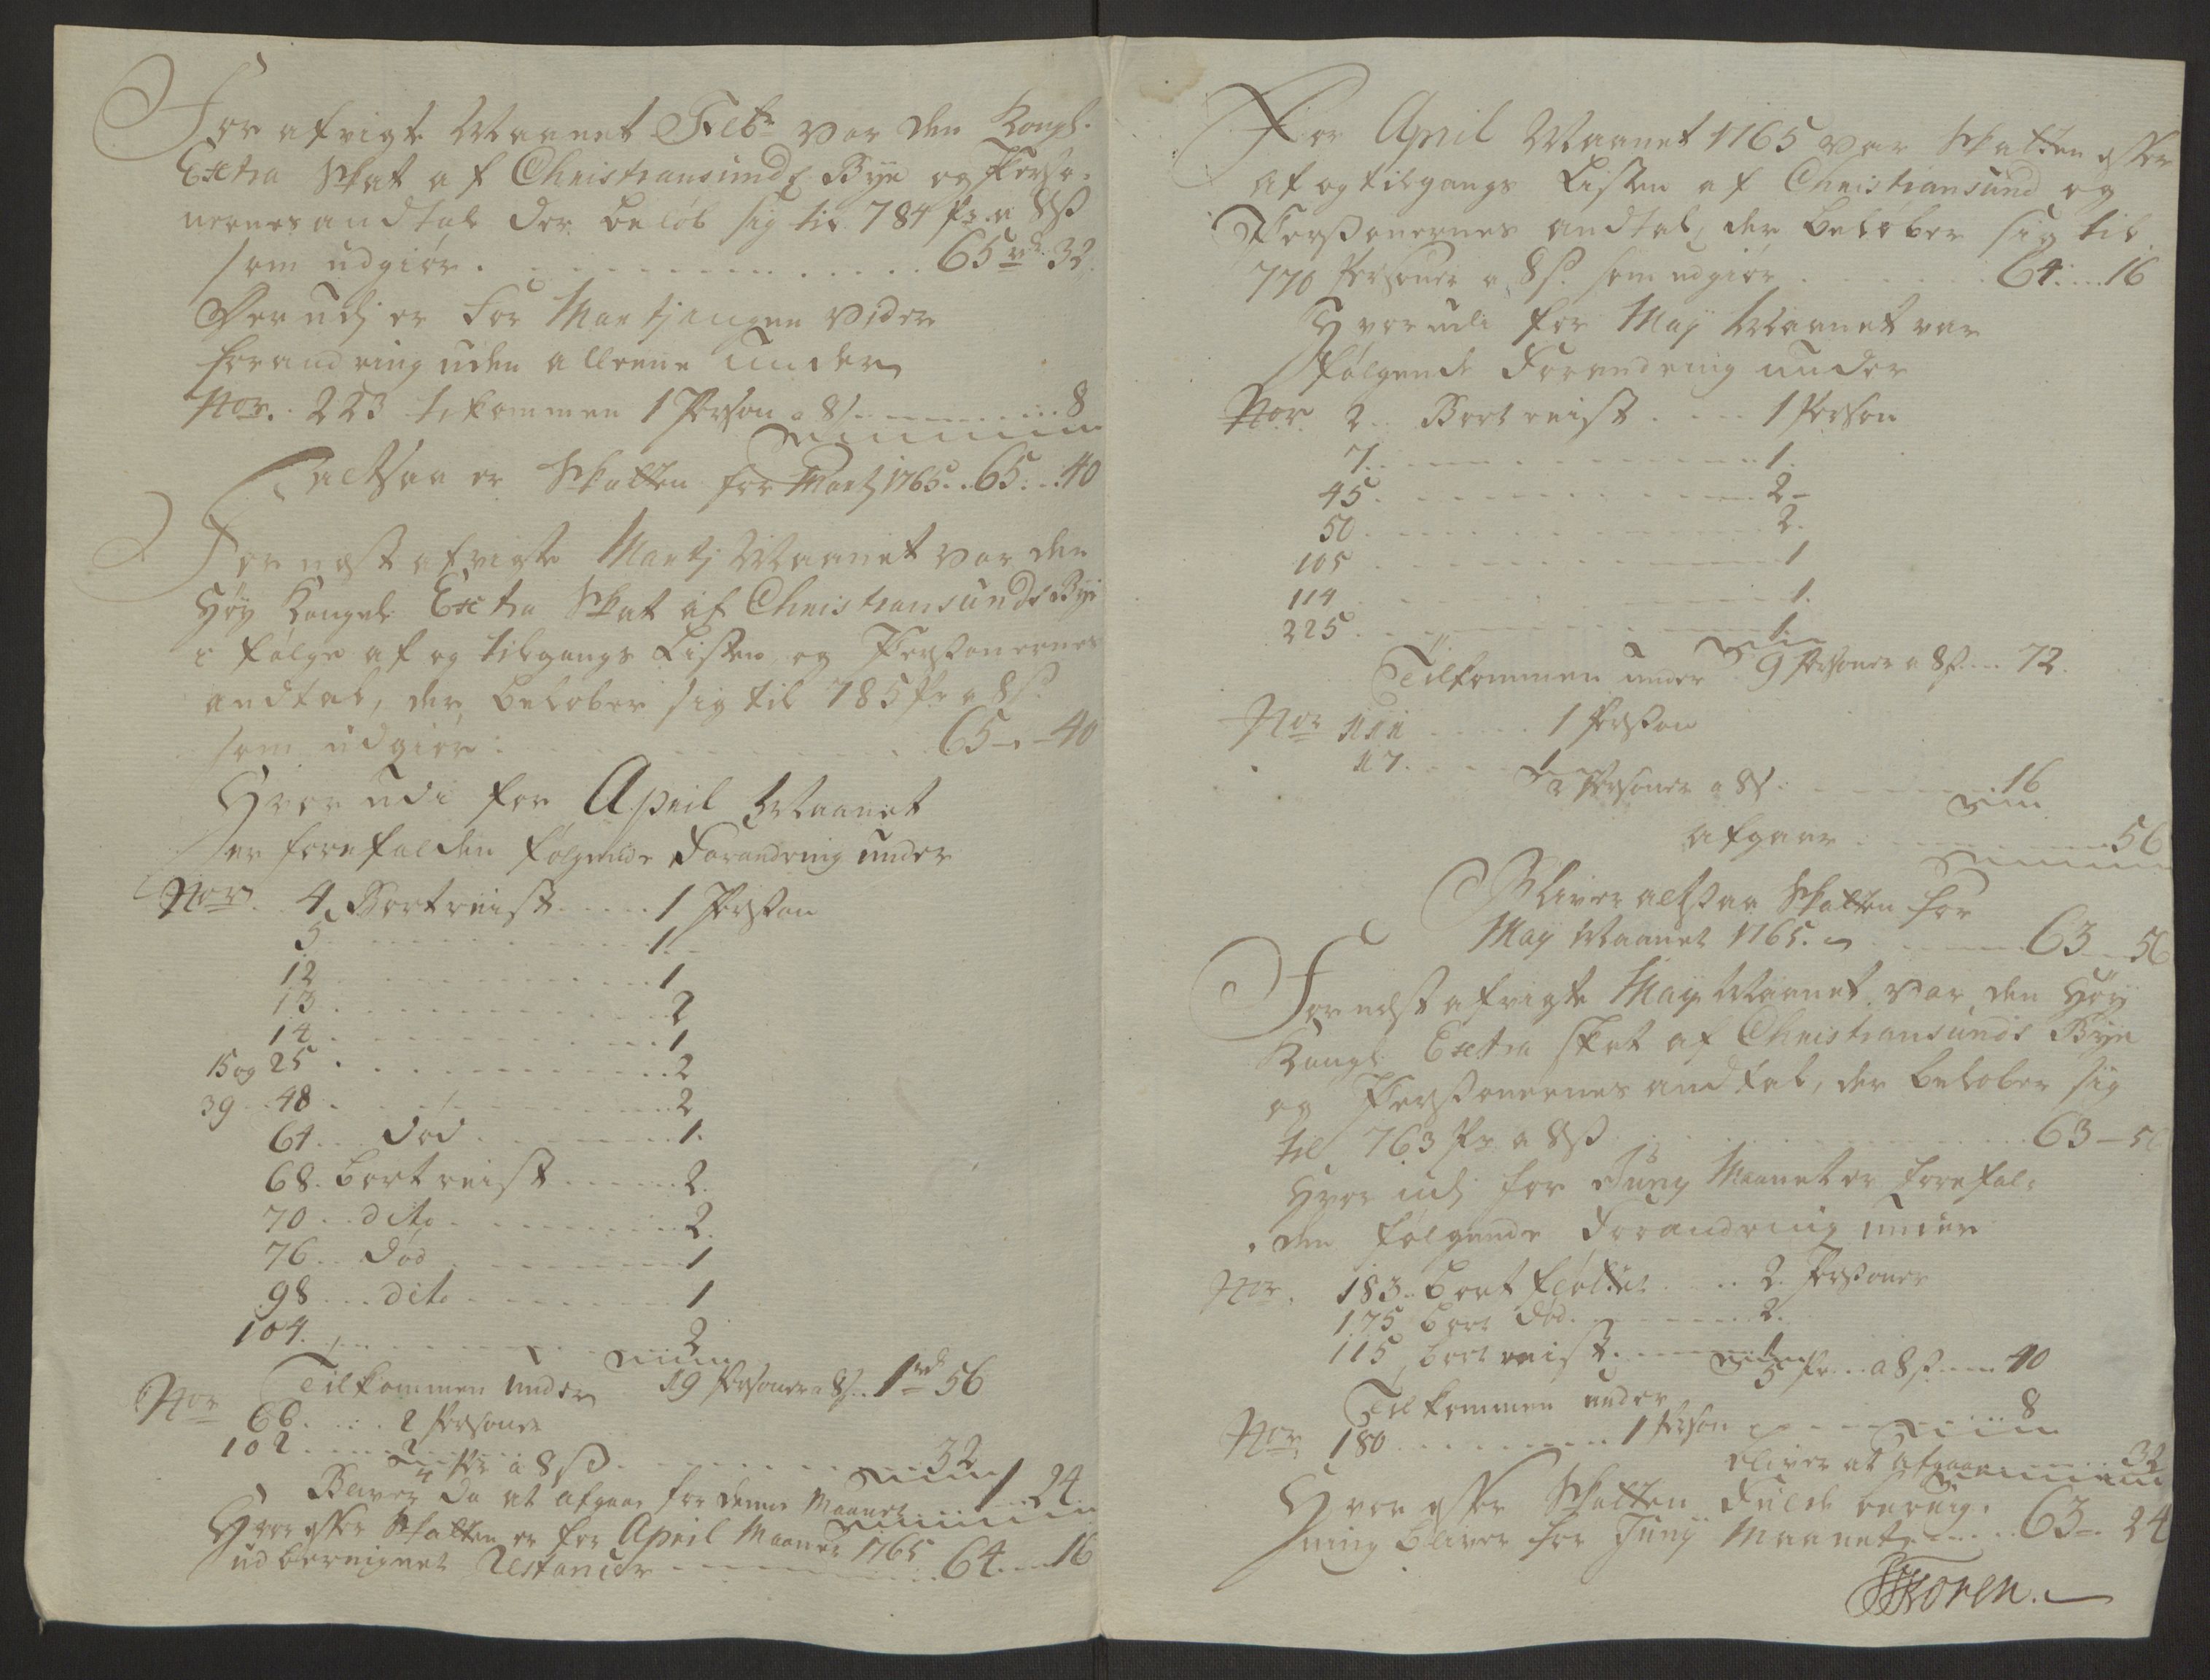 For afvigte Maanet Febr. var den Kongl.
Extra Skat af Christiansunds Bye og Perso-
nernes andtal der beløb sig til 784 Pr. a 8 s
som udgiør . . . 65 rd 32
Der udj er for Martj ingen vider
forandring uden alleene under
Nor. 223 tilkommen 1 Person a 8 s . . . 8
altsaa er Skatten for Martj 1765 . . 65 . . 40
For nest afvigte Martj Maanet var den
Høy Kongel. Extra Skat af Christiansunds Bye
i følge af og tilgangs Listen, og Personernes
andtal, der beløber sig til 785 Pr. a 8 s
som udgiør . . . 65 - 40
Hvor udi for April Maanet
er forefalden følgende Forandring under
Nor. 4 Bortreist . . . 1 Person
5 . . . 1
12 . . . 1
13 . . . 2
14 . . . 1
15 og 25 . . . 2
39 . . 48 . . . 2
64 . . . død . . . 1.
68. bortreist . . . 2.
70 . . dito . . . 2.
76 . . død . . . 1
98 . . . dito . . . 1
104. . . . 2
19 Personer a 8 s . . 1 rd 56
Tilkommen under
Nor 66 . . . 2 Personer
102 . . . 2
4 Pr. a 8 s . . . 32
Bliver da at afgaae for denne Maanet . . . 1 24
Hvor efter Skatten er for April Maanet 1765
udberignet Restancer . . . 64 . . 16
For April Maanet 1765 var Skatten efter
af og tilgangs Listen af Christiansund og
Personernes andtal, der beløber sig til
770 Personer a 8 s. som udgiør . . . 64 . . . 16
Hvorudi for Maÿ Maanet var
følgende Forandring under
Nor. 2 . . Bortreist . . . 1 Person
7. . . . 1.
45. . . . 2 -
50 . . . 2.
105 . . . 1
114 . . . 1.
225. . . . 1
9 Personer a 8 s . . . 72.
Tilkommen under
Nor 111 . . . 1 Person
117. . . . 1
2 Personer a 8 s. . . . 16
afgaar . . . 56
Bliver altsaa Skatten for
Maÿ Maanet 1765. . . . 63 - 56
For nest afvigte Maÿ Maanet var den Høy
Kongl. Extra Skat af Christiansunds Bye
og Personernes andtal, der beløber sig
til 763 Pr. a 8 s . . . 63 - 56
Hvor udj for Junÿ Maanet er forefal-
den følgende Forandring under
Nor. 183. . bort fløttet . . . 2. Personer
175 bort død . . . 2.
115 bortreist. . . . 1
5 Pr. . . a 8 s . . . 40
Tilkommen under
Nor. 180 . . . 1 Person . . . 8
bliver at afgaae . . . 32
Hvor efter Skatten fulde bereig-
ning bliver for Junÿ Maanet . . . 63 - 24
Koren.